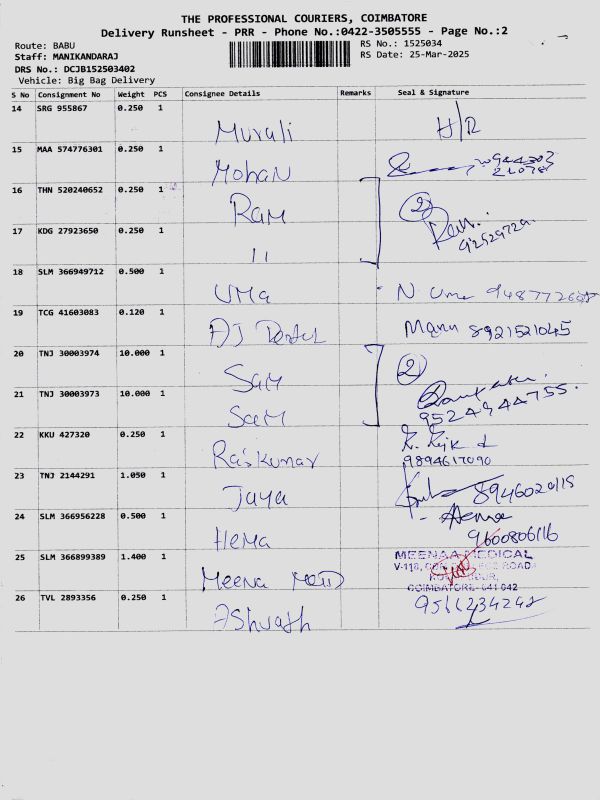 THE PROFESSIONAL COURIERS, COIMBATORE
Delivery Runsheet - PRR - Phone No.:0422-3505555 - Page No.:2
Route: BABU
Staff: MANIKANDARAJ
DRS No.: DCJB152503402
Vehicle: Big Bag Delivery
RS No.: 1525034
RS Date: 25-Mar-2025
S No Consignment No Weight PCS Consignee Details Remarks Seal & Signature
14 SRG 955867 0.250 1 Murali H/R
15 MAA 574776301 0.250 1 Mohan
16 THN 520240652 0.250 1 Ram 2
17 KDG 27923650 0.250 1 11
18 SLM 366949712 0.500 1 UMa N Uma
19 TCG 41603083 0.120 1 AJ Dental Manu 8921521045
20 TNJ 30003974 10.000 1 Sam 2
21 TNJ 30003973 10.000 1 Sam 9524944755
22 KKU 427320 0.250 1 Raskumar 9894617090
23 TNJ 2144291 1.050 1 Jaya 8946020115
24 SLM 366956228 0.500 1 HeMa Hema 9600806116
25 SLM 366899389 1.400 1 Meena MeD MEENAA MEDICAL
V-118, ROAD
COIMBATORE- 641 042
26 TVL 2893356 0.250 1 AShwath